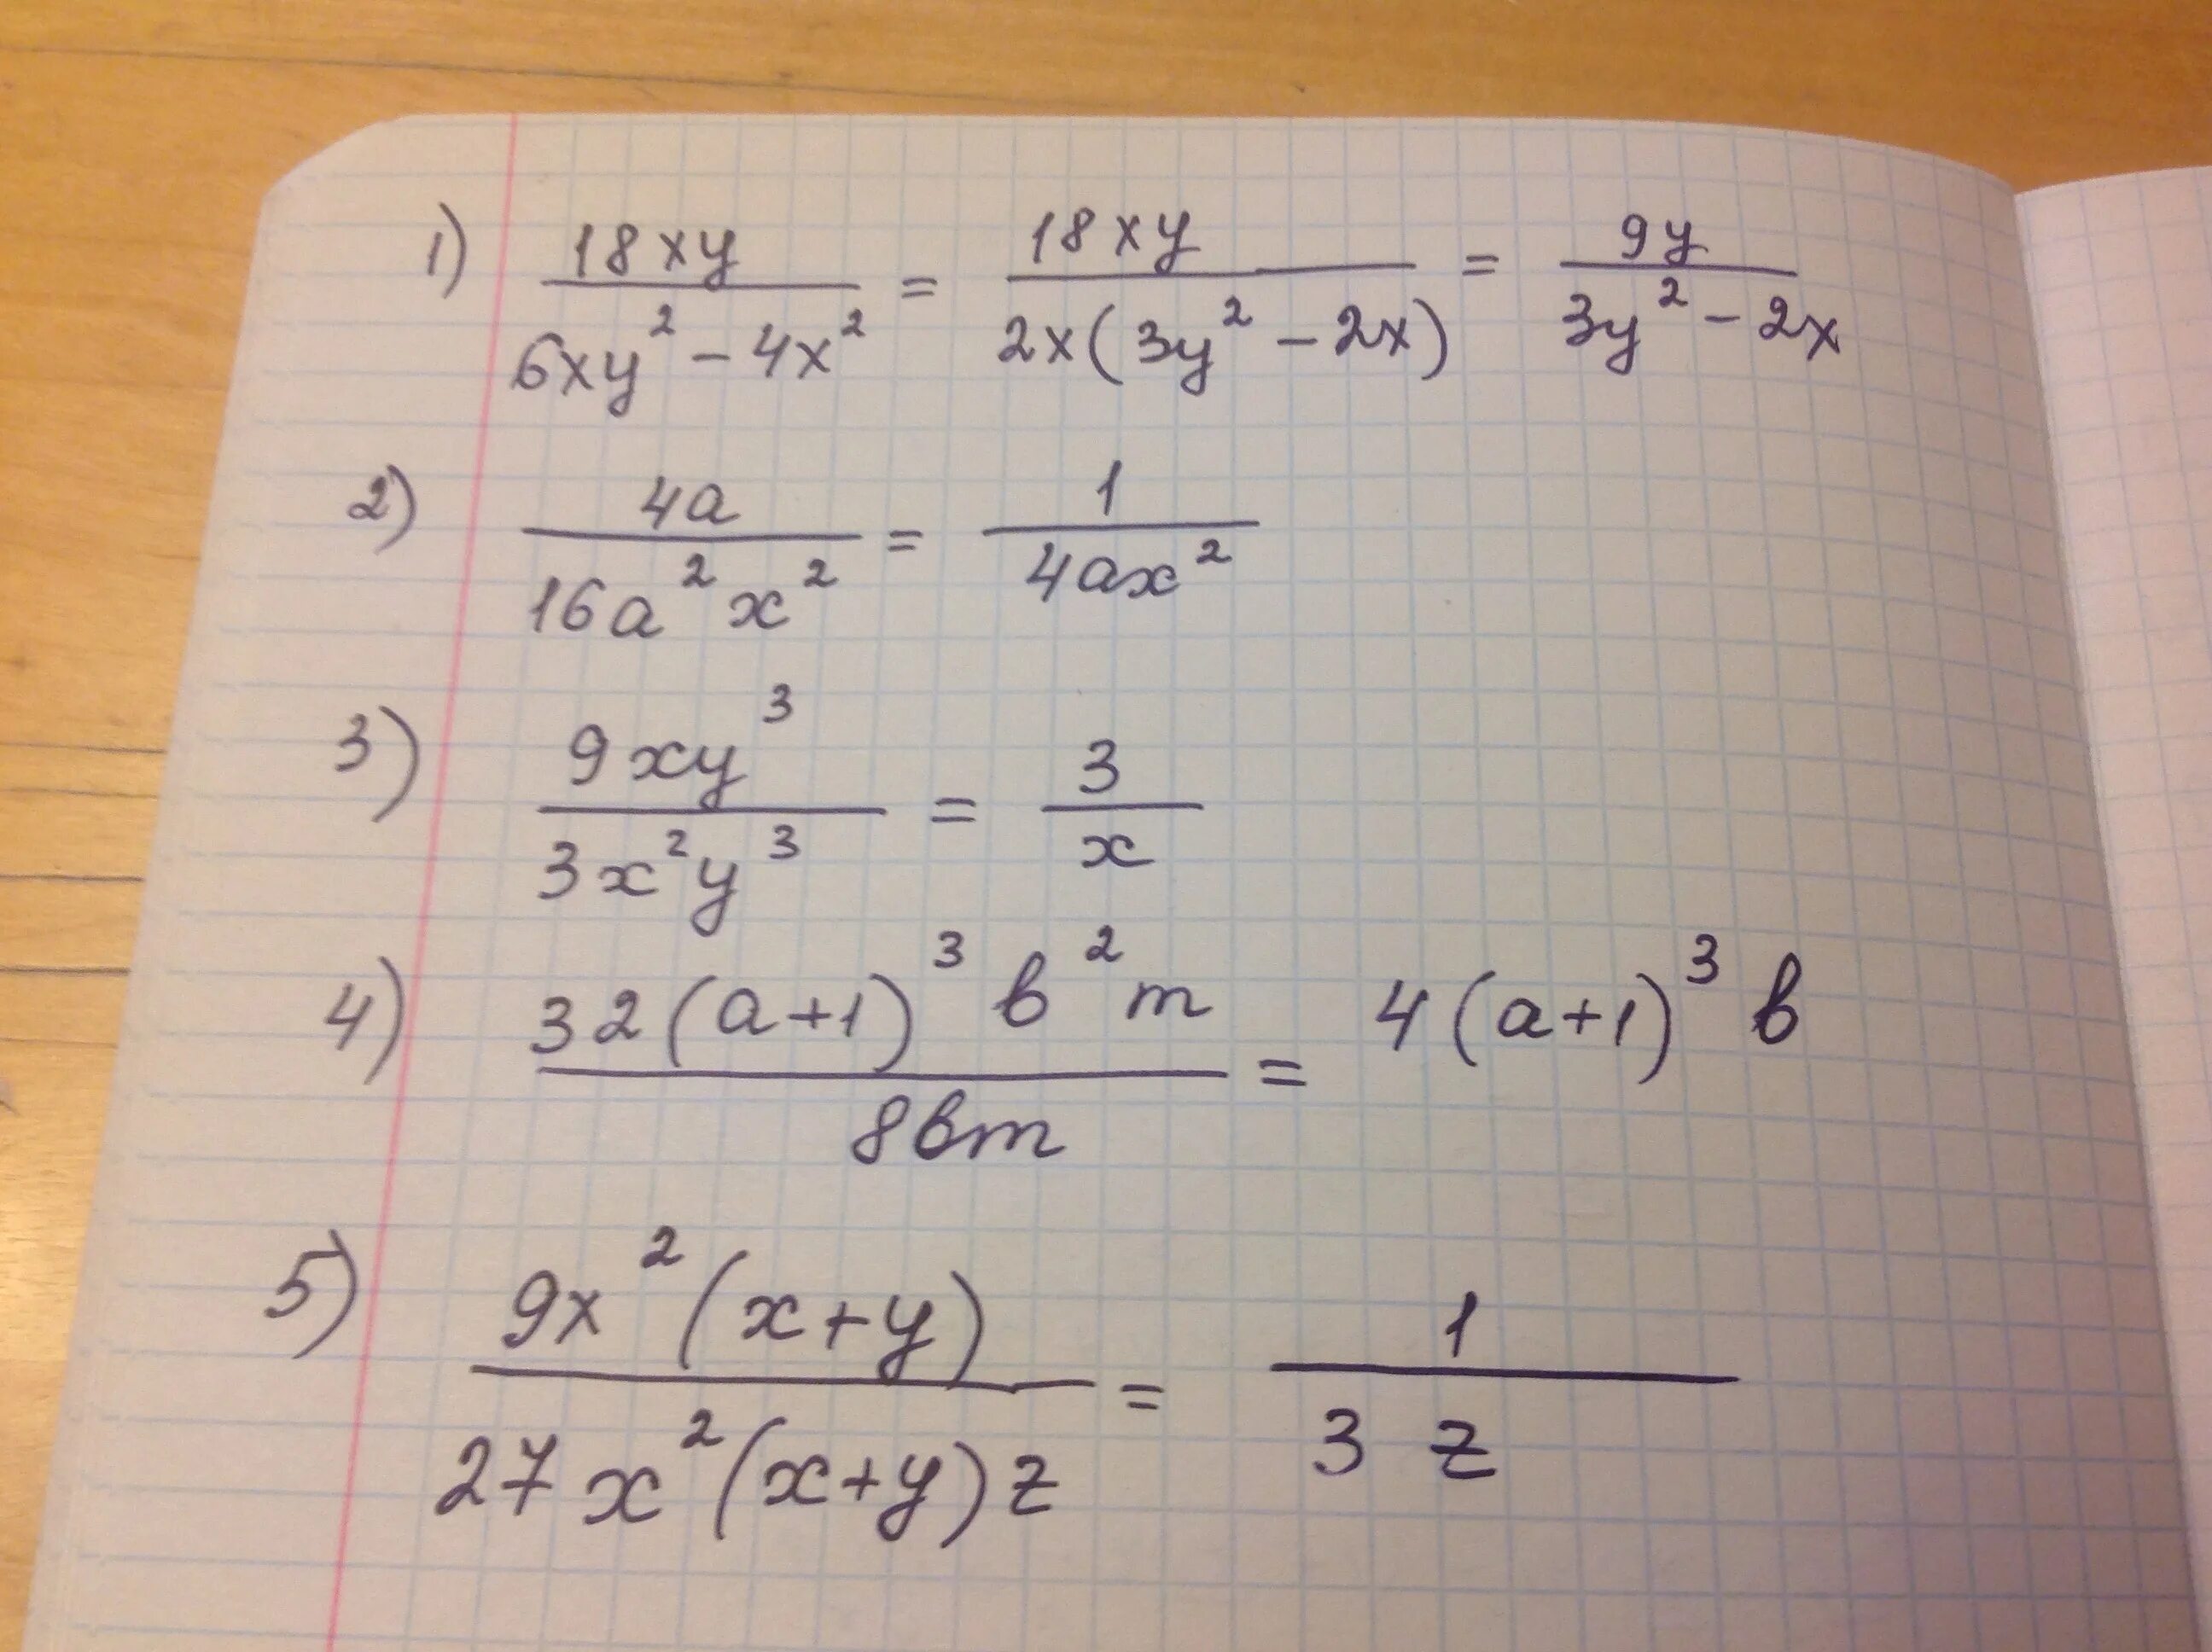 1) 18xy / 6xy² − 4x² = 18xy / 2x(3y² − 2x) = 9y / 3y² − 2x
2) 4a / 16a²x² = 1 / 4ax²
3) 9xy³ / 3x²y³ = 3 / x
4) 32(a+1)³ в²m / 8вm = 4(a+1)³ в
5) 9x²(x+y) / 27x²(x+y)z = 1 / 3z